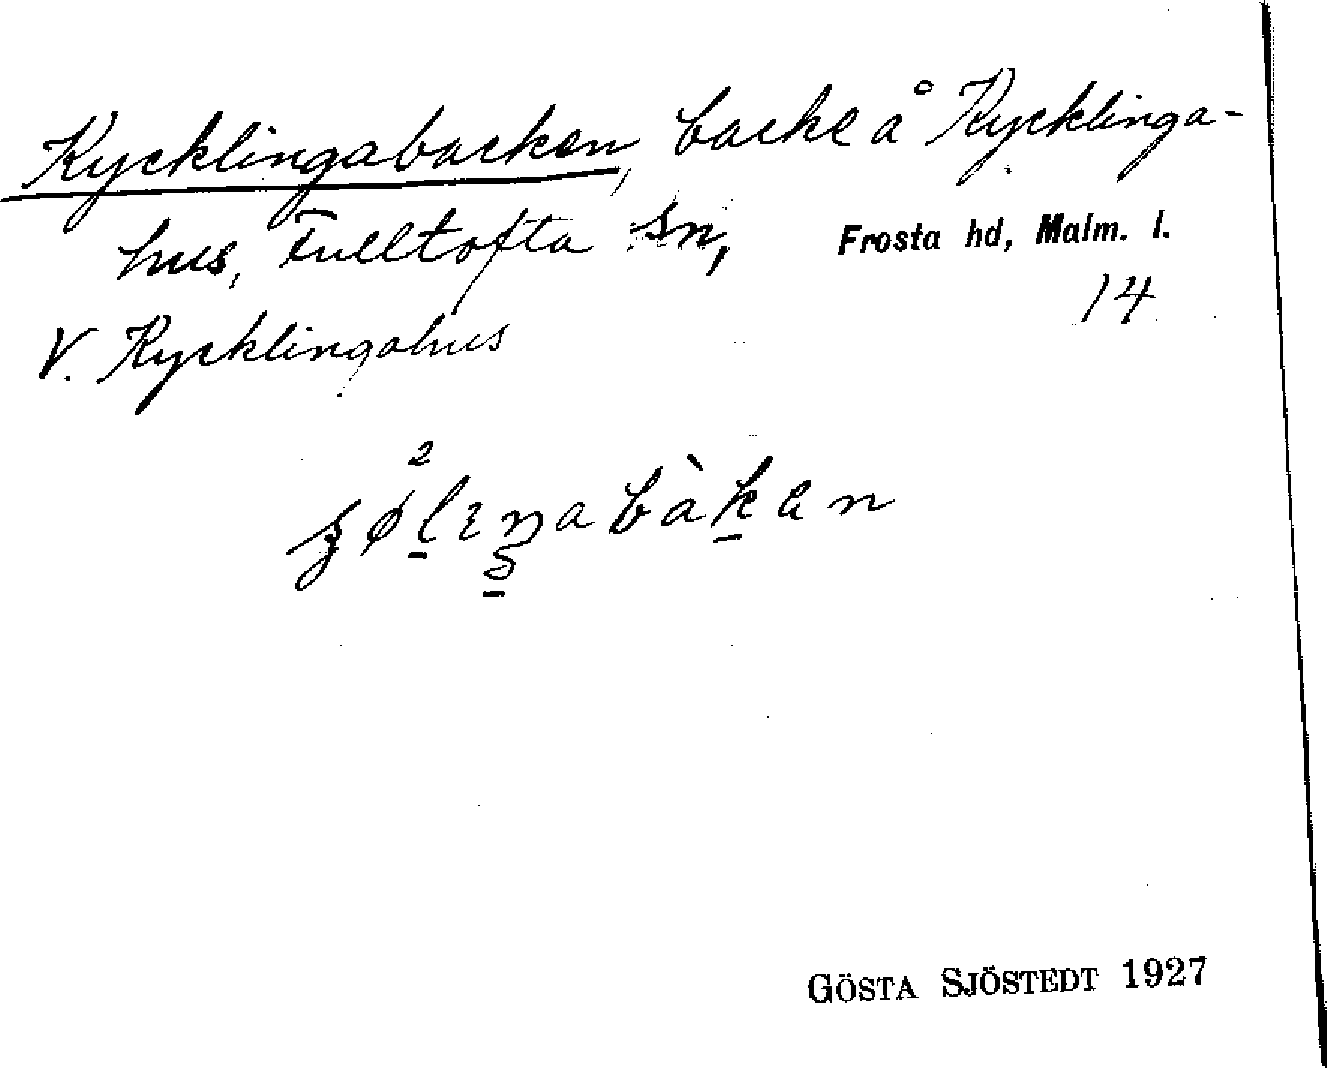 Kycklingabacken, backe å Kycklinga-
hus, Fulltofta sn, Frosta hd, Malm. l.
14
V. Kycklingahus
GÖSTA SJÖSTEDT 1927